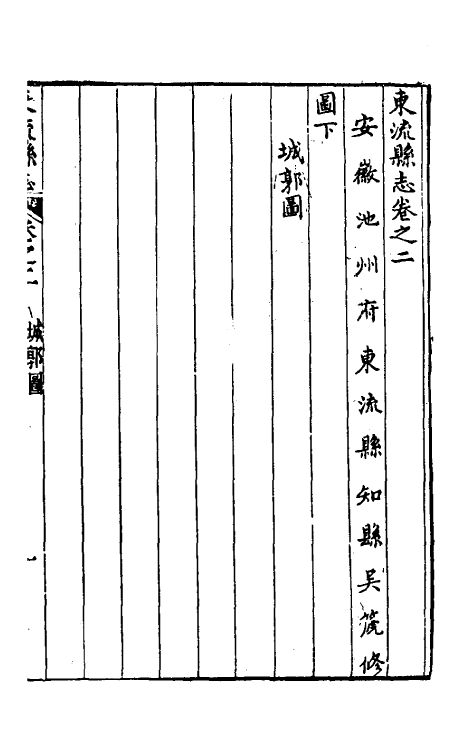 東流縣志卷之二
安徽池州府東流縣知縣吴篪修
圖下
城郭圖
東流縣志
卷之二
城郭圖
一